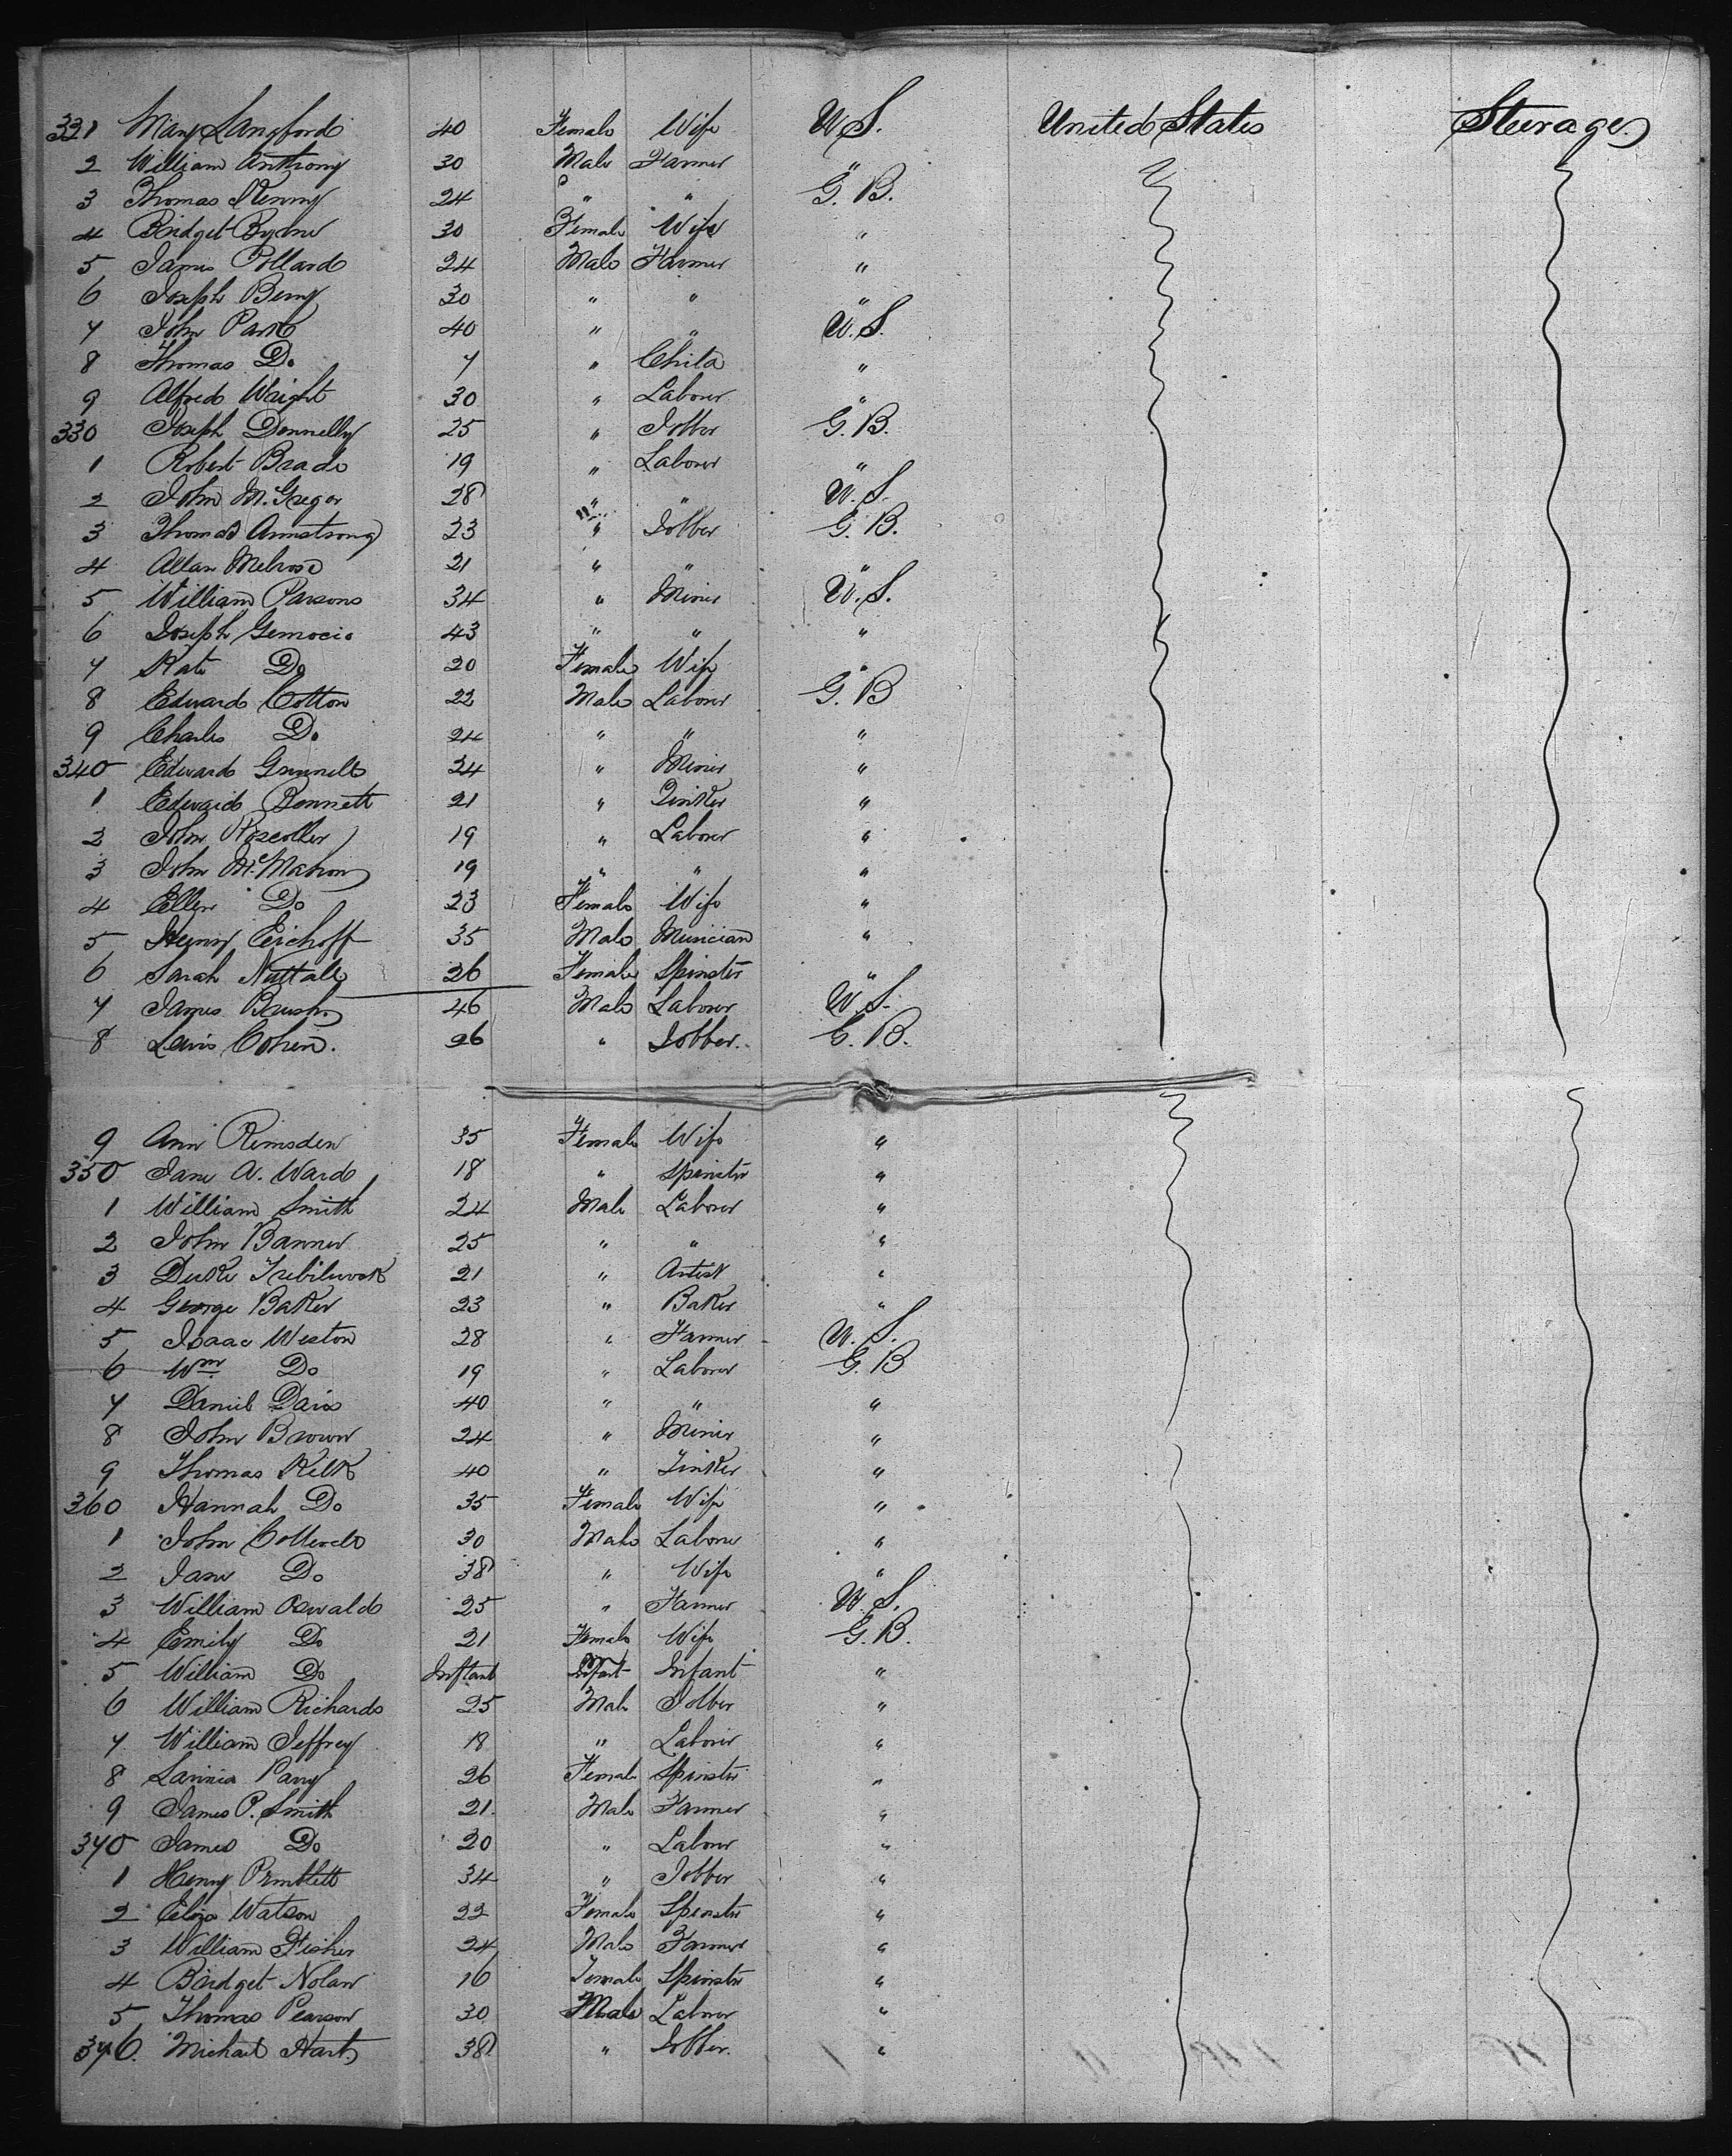 321 Mary Langford 40 Female Wife U.S. United States Steerage
2 William Anthony 30 Male Farmer "
3 Thomas Kenny 24 " " G.B.
4 Bridget Byrne 30 Female Wife "
5 James Pollard 24 Male Farmer "
6 Joseph Berry 30 " " "
7 John Park 40 " " U.S.
8 Thomas Do 7 " Child "
9 Alfred Wright 30 " Laborer "
330 Joseph Donnelly 25 " Jobber G.B.
1 Robert Brade 19 " Laborer "
2 John McGregor 28 " " U.S.
3 Thomas Armstrong 23 " Jobber G.B.
4 Allan Melrose 21 " " "
5 William Parsons 34 " Miner U.S.
6 Joseph 43 " " "
7 Kate Do 20 Female Wife "
8 Edward Cotton 22 Male Laborer G.B
9 Charles Do 24 " " "
340 Edward 24 " Miner "
1 Edward Bennett 21 " Tinker "
2 John 19 " Laborer "
3 John McMahon 19 " " "
4 Ellen Do 23 Female Wife "
5 Henry Eichoff 35 Male Musician "
6 Sarah Nuttall 26 Female Spinster "
7 James Brush 46 Male Laborer U.S.
8 Lewis Cohen. 26 " Jobber. G.B.
9 Ann Rimsden 35 Female Wife "
350 Jane A. Ward 18 " Spinster "
1 William Smith 24 Male Laborer "
2 John Banner 25 " " "
3 Duke 21 " Artist "
4 George Baker 23 " Baker "
5 Isaac Weston 28 " Farmer U.S.
6 Wm Do 19 " Laborer G.B
7 Daniel Davis 40 " " "
8 John Brown 24 " Miner "
9 Thomas Kelk 40 " Tinker "
360 Hannah Do 35 Female Wife "
1 John 30 Male Laborer "
2 Jane Do 38 " Wife "
3 William Oswald 25 " Farmer U.S.
4 Emily Do 21 Female Wife G.B.
5 William Do Infant Infant "
6 William Richards 25 Male Jobber "
7 William Jeffrey 18 " Laborer "
8 Lavinia Parry 26 Female Spinster "
9 James P. Smith 21. Male Farmer "
370 James Do 20 " Laborer "
1 Henry 34 " Jobber "
2 Eliza Watson 22 Female Spinster "
3 William Fisher 24 Male Farmer "
4 Bridget Nolan 16 Female Spinster "
5 Thomas Pearson 30 Male Laborer "
376. Michael Hart. 38 " Jobber. "